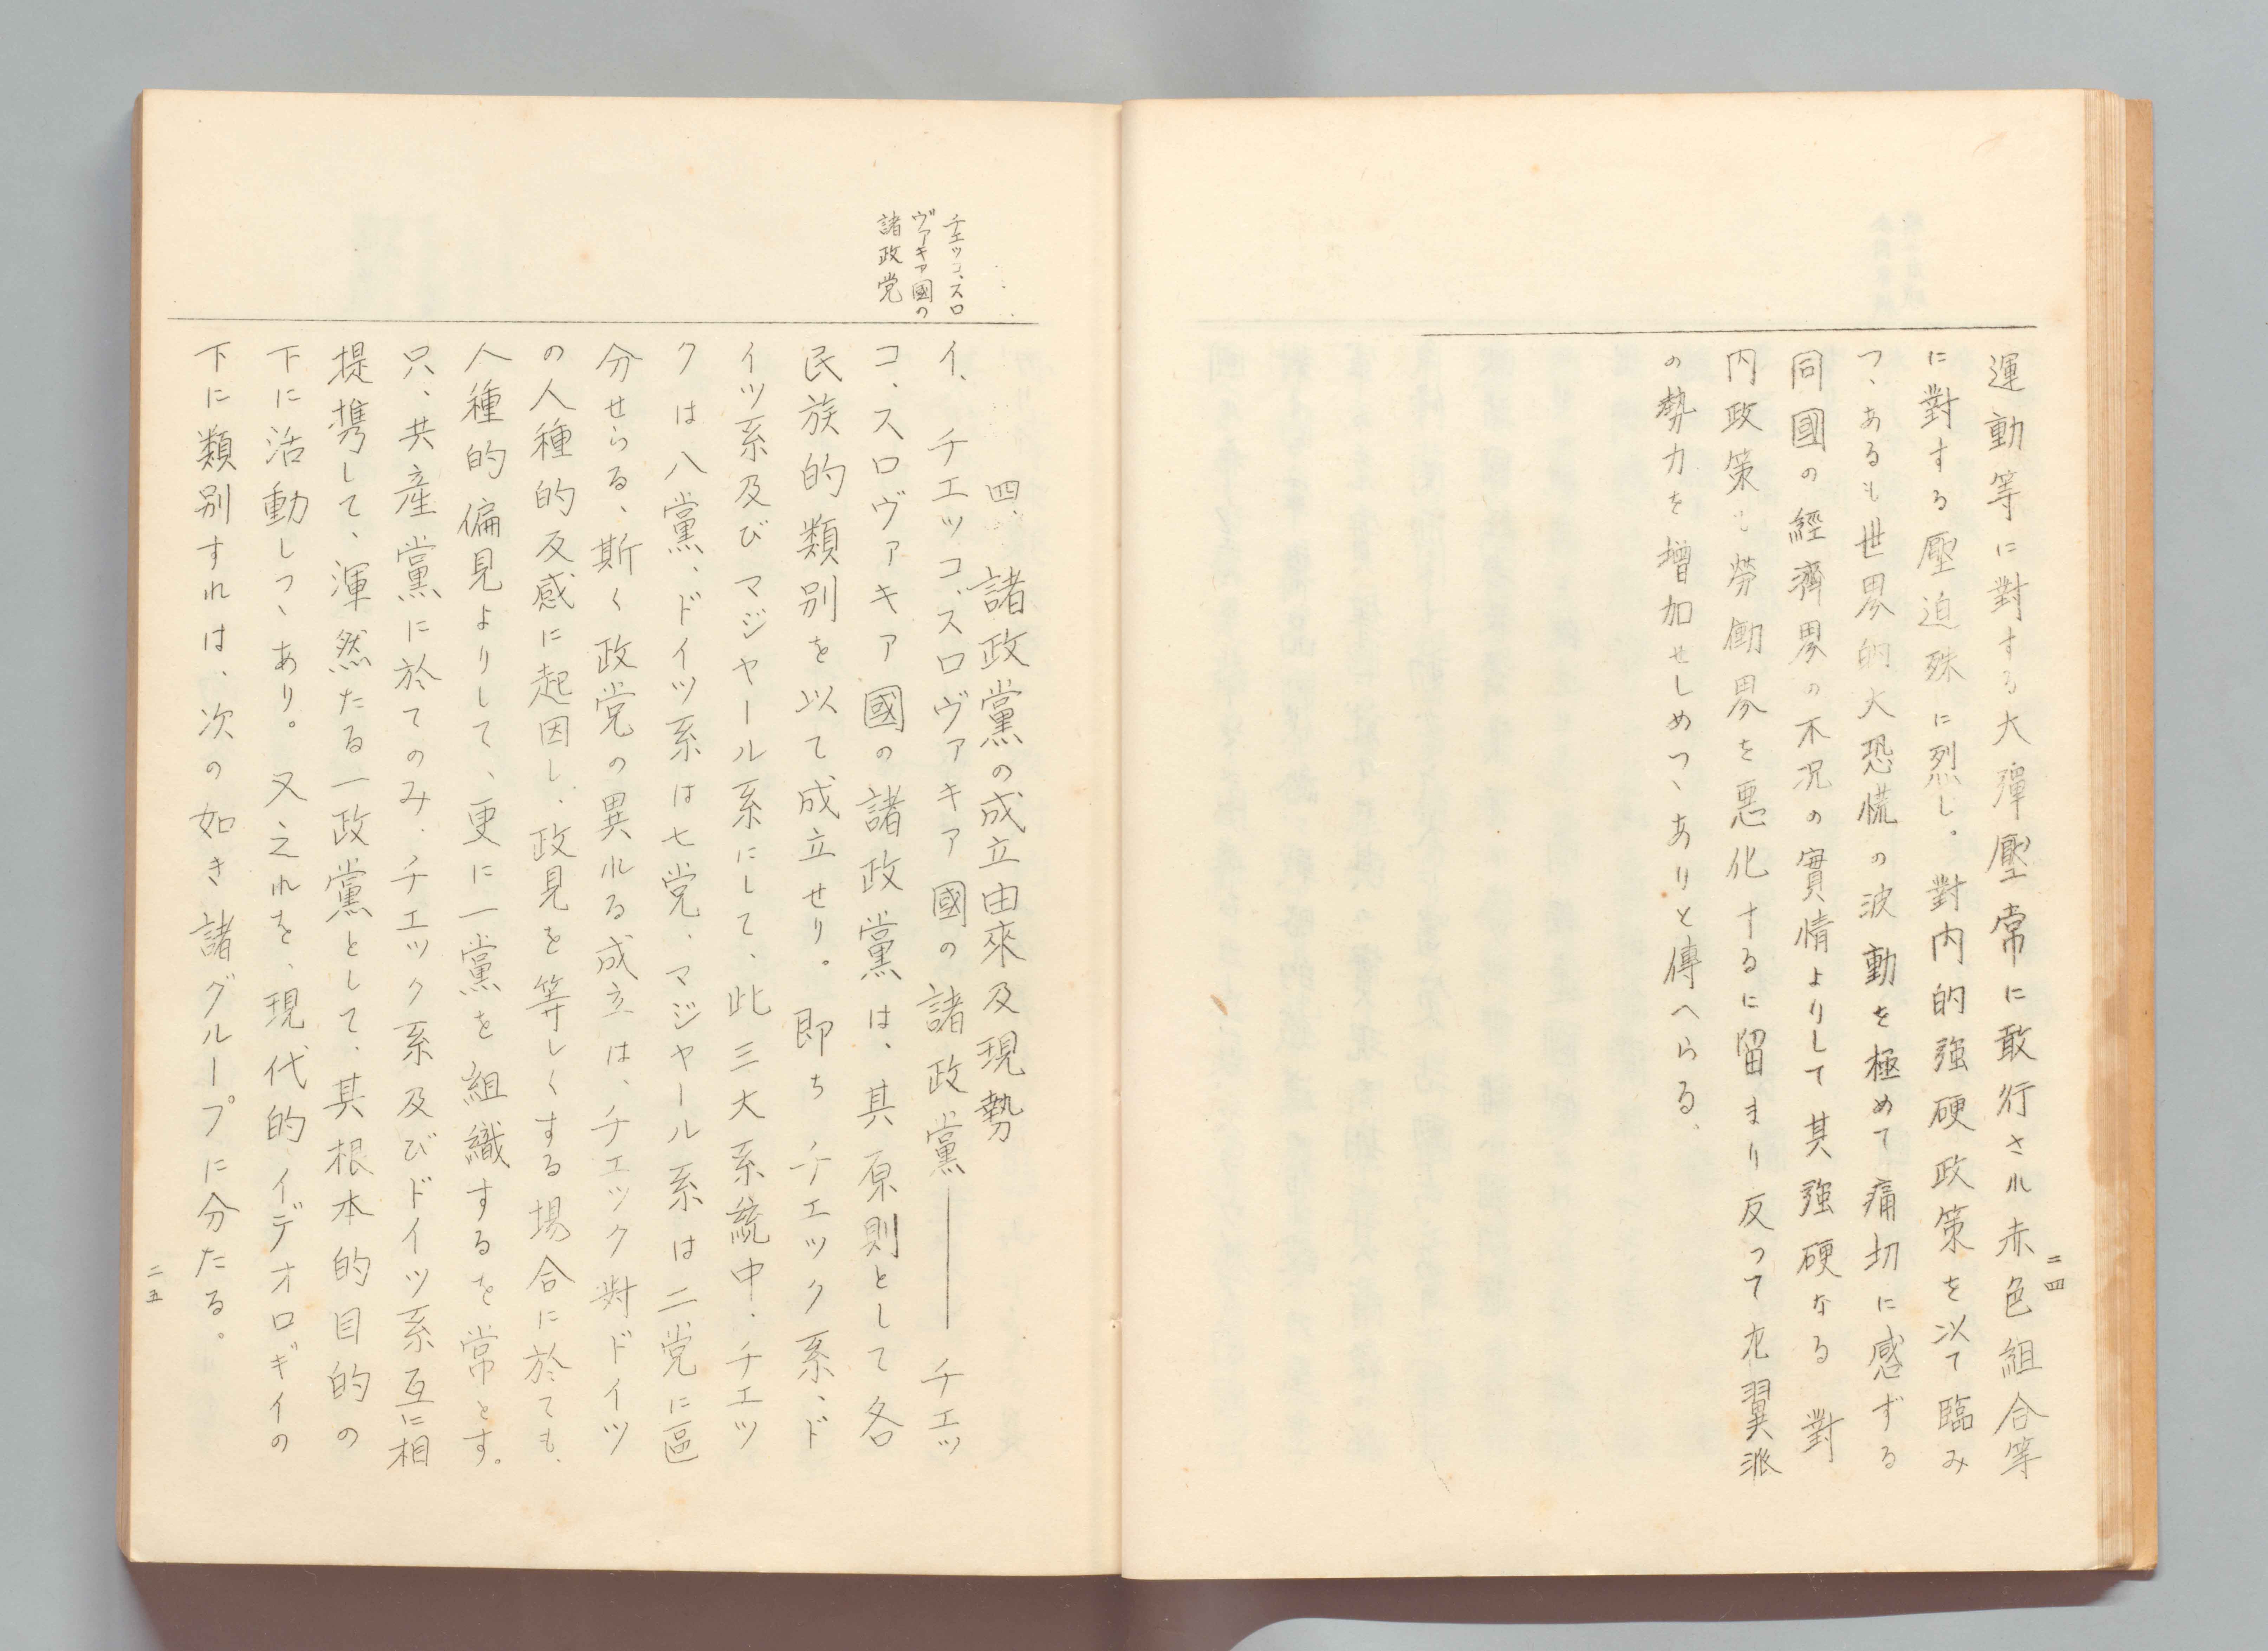 二四
運動等に對する大彈壓常に敢行され赤色組合等
に對する壓迫殊に烈し。對内的強硬政策を以て臨み
つゝあるも世界的大恐慌の波動を極めて痛切に感ずる
同國の經濟界の不況の實情よりして其強硬なる對
内政策も勞働界を悪化するに留まり反つて左翼派
の勢力を增加せしめつゝありと傳へらる、
チエツコ、スロ
ヴアキア國の
諸政党
四、諸政黨の成立由來及現勢
イ、チエツコ、スロヴアキア國の諸政黨——チエツ
コ、スロヴアキア國の諸政黨は、其原則として各
民族的類別を以て成立せり。即ちチエツク系、ド
イツ系及びマジヤール系にして、此三大系統中、チエツ
クは八黨、ドイツ系は七党、マジヤール系は二党に區
分せらる、斯く政党の異れる成立は、チエツク対ドイツ
の人種的反感に起因し、政見を等しくする場合に於ても、
人種的偏見よりして、更に一黨を組織するを常とす。
只、共産黨に於てのみ、チエツク系及びドイツ系互に相
提携して、渾然たる一政黨として、其根本的目的の
下に活動しつゝあり。又之れを、現代的イデオロギイの
下に類別すれは、次の如き諸グループに分たる。
二五